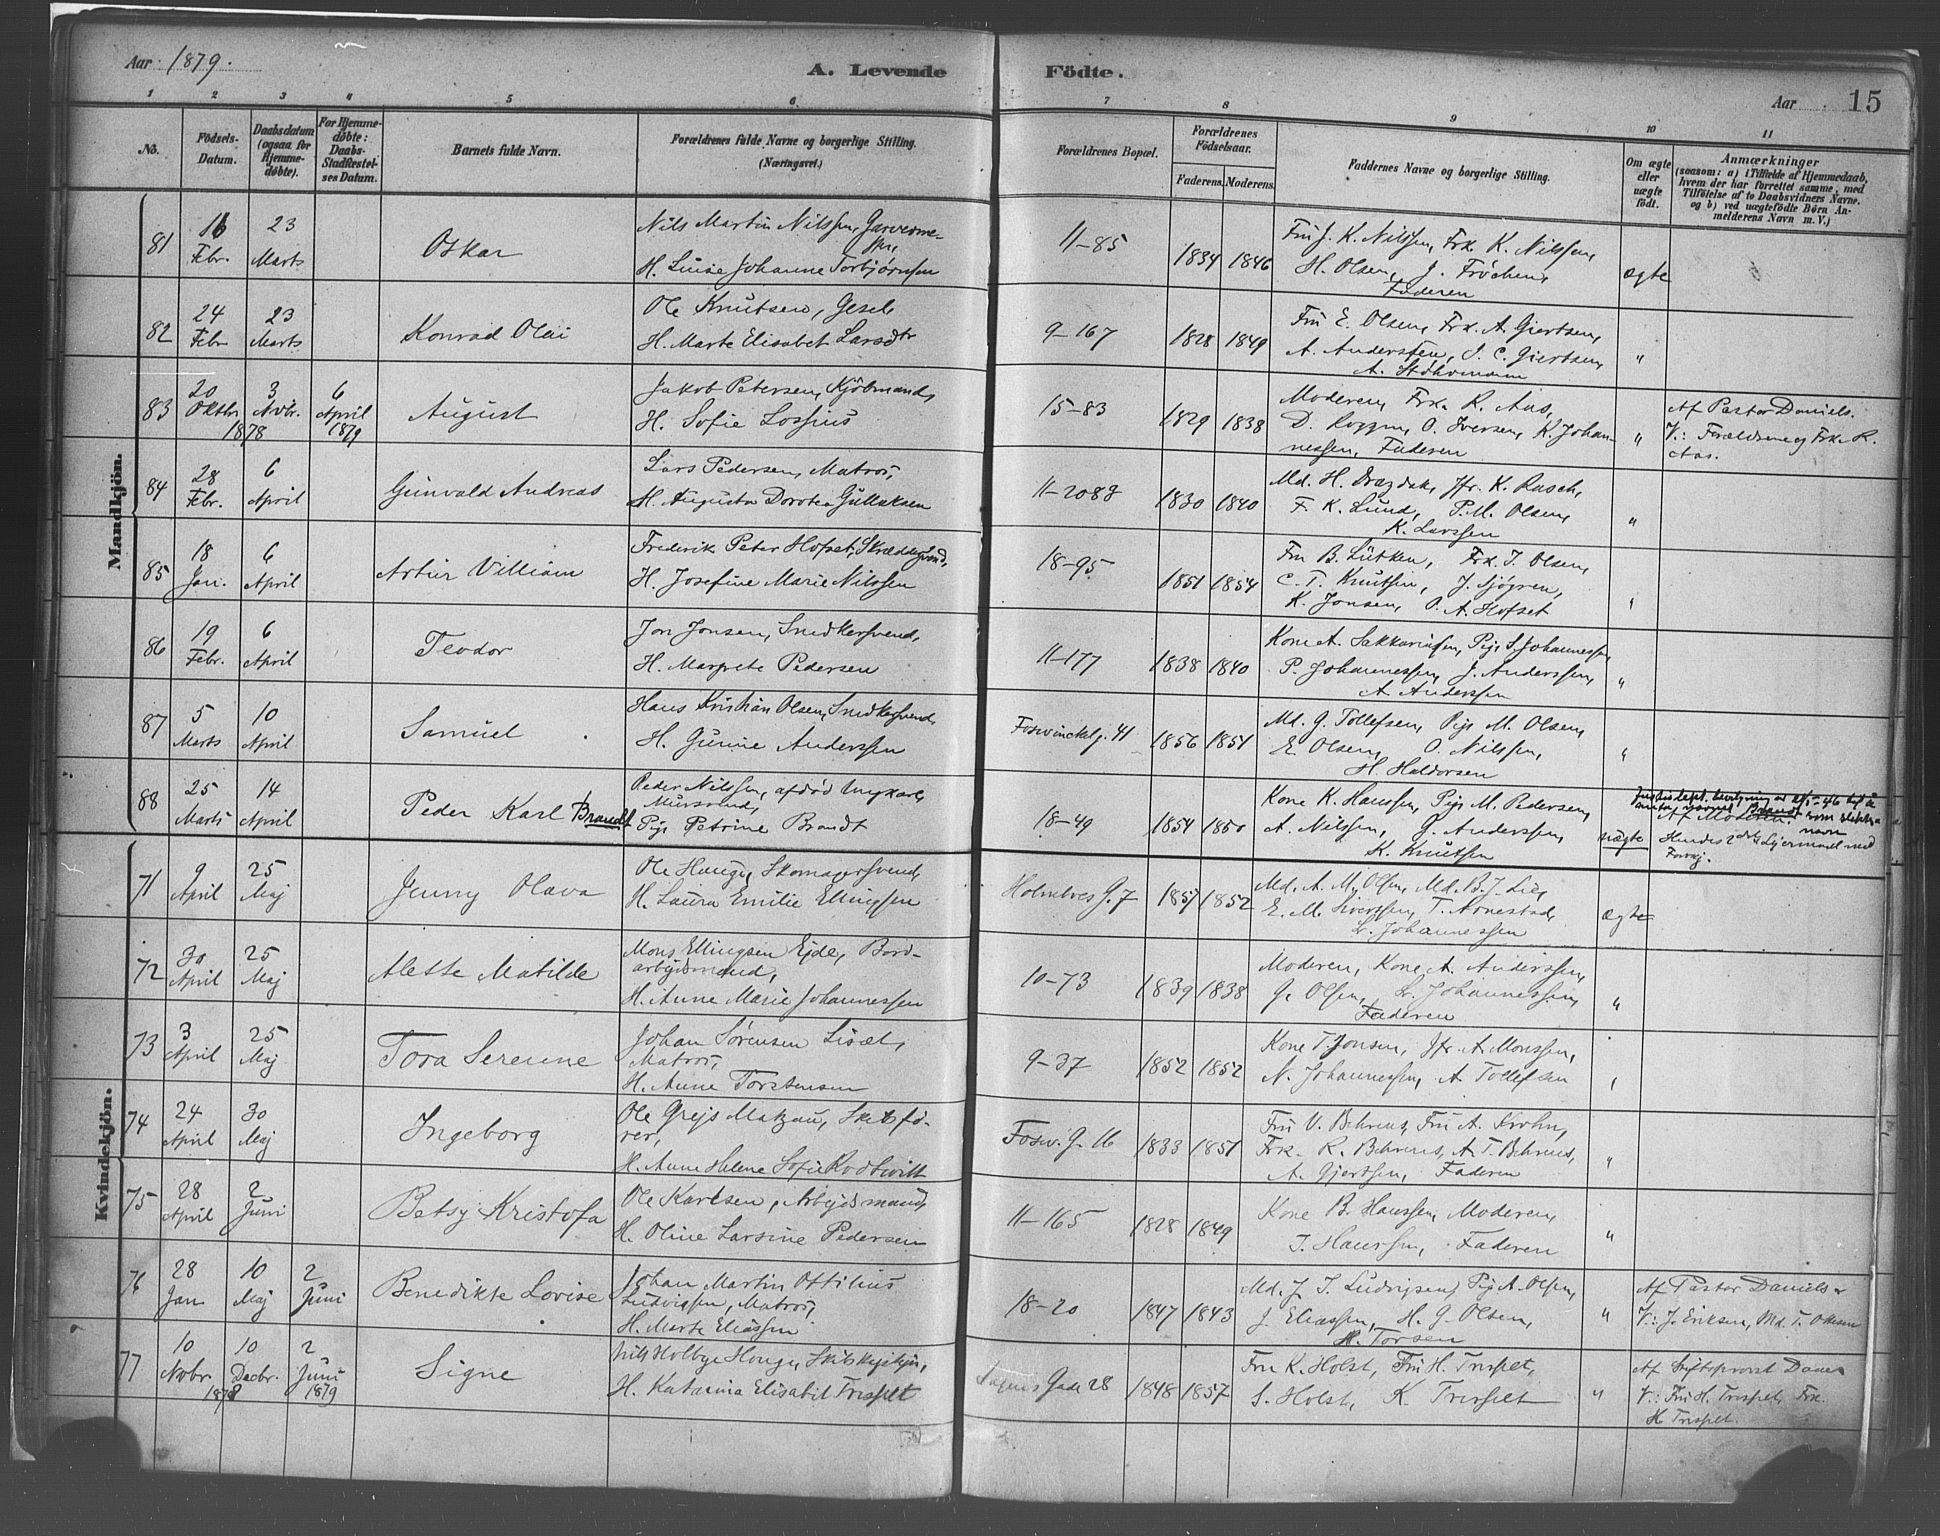 Aar 1879.
A. Levende Födte.
Aar 15
1 2 3 4 5 6 7 8 9 10 11
No.
Födsels-Datum.
Daabsdatum (ogsaa for Hjemmedöbte).
For Hjemmedöbte: Daabs-Stadfæstelses Datum.
Barnets fulde Navn.
Forældrenes fulde Navne og borgerlige Stilling. (Næringsvei.)
Forældrenes Bopæl.
Forældrenes Födselsaar.
Faderens. Moderens.
Faddernes Navne og borgerlige Stilling.
Om ægte eller uægte födt.
Anmærkninger
(saasom: a) i Tilfælde af Hjemmedaab, hvem der har forrettet samme, med Tilföielse af to Daabsvidners Navne, og b) ved uægtefödte Börn Anmelderens Navn m. V.)
Mandkjön.
81 16 Febr. 23 Marts Oskar
Nils Martin Nilssen,
H. Luise Johanne Torbjørnsen
11-85 1834 1846
Fru J. K. Nilssen, Frk. K. Nilssen,
H. Olsen, J. Frøchen,
Faderen
ægte
82 24 Febr 23 Marts Konrad Olai
Ole Knutsen, Gesel
H. Marte Elisabet Larsdtr
9-167 1828 1849
Fru E. Olsen, Frk. A. Giertsen,
A. Anderssen, S. C. Giertsen,
"
83 20 Oktbr. 3 Novbr. 1878 6 April 1879 August
Jakob Petersen, Kjøbmand,
H. Sofie Lossius
15-83 1829 1838
Moderen, Frk. R. Aas,
D. O. Iversen, K. Johan-
nessen, Faderen
"
Af Pastor Daniels.
V: Forældrene og Frk. R.
Aas.
84 28 Febr. 6 April Gunvald Andreas
Lars Pedersen, Matros,
H. Augusta Dorotea Gullaksen
11-208 1830 1840
Md. H. Jfr. K. Rasch,
F. K. Lund, P. M. Olsen,
K. Larssen
"
85 18 Jan. 6 April Artur Villiam
Frederik Peter Hofset, Skræddersvend,
H. Josefine Marie Nilssen
18-95 1851 1854
Fru B. Lütken, Frk. J. Olsen,
C. T. Knutsen, J. Sjögren,
K. Jonsen, O. A. Hofset
"
86 19 Febr. 6 April Teodor
Jon Jonsen, Snedkersvend,
H. Margrete Pedersen
11-177 1838 1840
Kone A. Sakkariasen, Pige S. Johannessen,
P. Johannessen, J. Anderssen,
A. Anderssen
"
87 5 Marts 10 April Samuel
Hans Kristian Olsen, Snedkersvend,
H. Gurine Anderssen
Foswinckelg. 41 1856 1851
Md. G. Tollefsen, Pige M. Olsen,
E. Olsen, O. Nilssen,
H. Haldorsen
"
88 25 Marts 14 April Peder Karl Brandt
Peder Nilssen, afdød Ungkarl,
Mursvend,
Pige Petrine Brandt
18-49 1854 1850
Kone K. Hanssen, Pige M. Pedersen,
A. Nilssen, G. Anderssen,
K. Knutsen
uægte
Justisdept. bevilgning av 2/5-46 til å
anta navnet Brandt som slekts-
navn
Af Moderen.
Hendes 2det Leiermaal med
Forrig.
Kvindekjön.
71 9 April 25 Maj Jenny Olava
Ole Hauge, Skomagersvend,
H. Laura Emilie Ellingsen
Holmeboes G. 7 1857 1852
Md. A. M. Olsen, Md. B. J. Lie,
E. M. Sivertsen, T. Arnestad,
L. Johannessen
ægte
72 30 April 25 Maj Alette Matilde
Mons Ellingsen Ejde, Bord-
arbejdsmand,
H. Anne Marie Johannessen
10-73 1839 1838
Moderen, Kone A. Anderssen,
G. Olsen, L. Johannessen,
Faderen
"
73 3 April 25 Maj Tora Serenne
Johan Sørensen
Matros,
H. Anne Torstensen
9-37 1852 1852
Kone T. Jonsen, Jfr. A. Monssen,
N. Johannessen, A. Tollefsen
"
74 24 April 30 Maj Ingeborg
Ole Grejs Matzau, Skibsfø-
rer,
H. Anne Helene Sofie
Fosw. G. 16 1833 1851
Fru V. Behrens, Fru A. Krohn,
Frk. R. Behrens, A. T. Behrens,
A. Gjertsen, Faderen
"
75 28 April 2 Juni Betsy Kristofa
Ole Karlsen, Arbejdsmand,
H. Oline Larsine Pedersen
11-165 1828 1849
Kone B. Hanssen, Moderen,
J. Hanssen, Faderen
"
76 28 Jan 10 Maj 2 Juni Benedikte Lovise
Johan Martin Ottilius
Ludvigsen, Matros,
H. Marte Eliassen
18-20 1847 1843
Md. J. J. Ludvigsen, Pige A. Olsen,
J. Eliassen, H. G. Olsen,
H. Torsen
"
Af Pastor Daniels.
V: J. Eriksen, Md. T.
77 10 Novbr. 10 Decbr. 1878 2 Juni 1879 Signe
Holbye Hauge,
H. Katarina Elisabet Trespet
Gade 28 1848 1857
Fru K. Holst, Fru H. Trespet,
S. Holst, K. Trespet
"
Af Stiftsprovst
V: Fru H. Trespet, Frk.
H. Trespet.